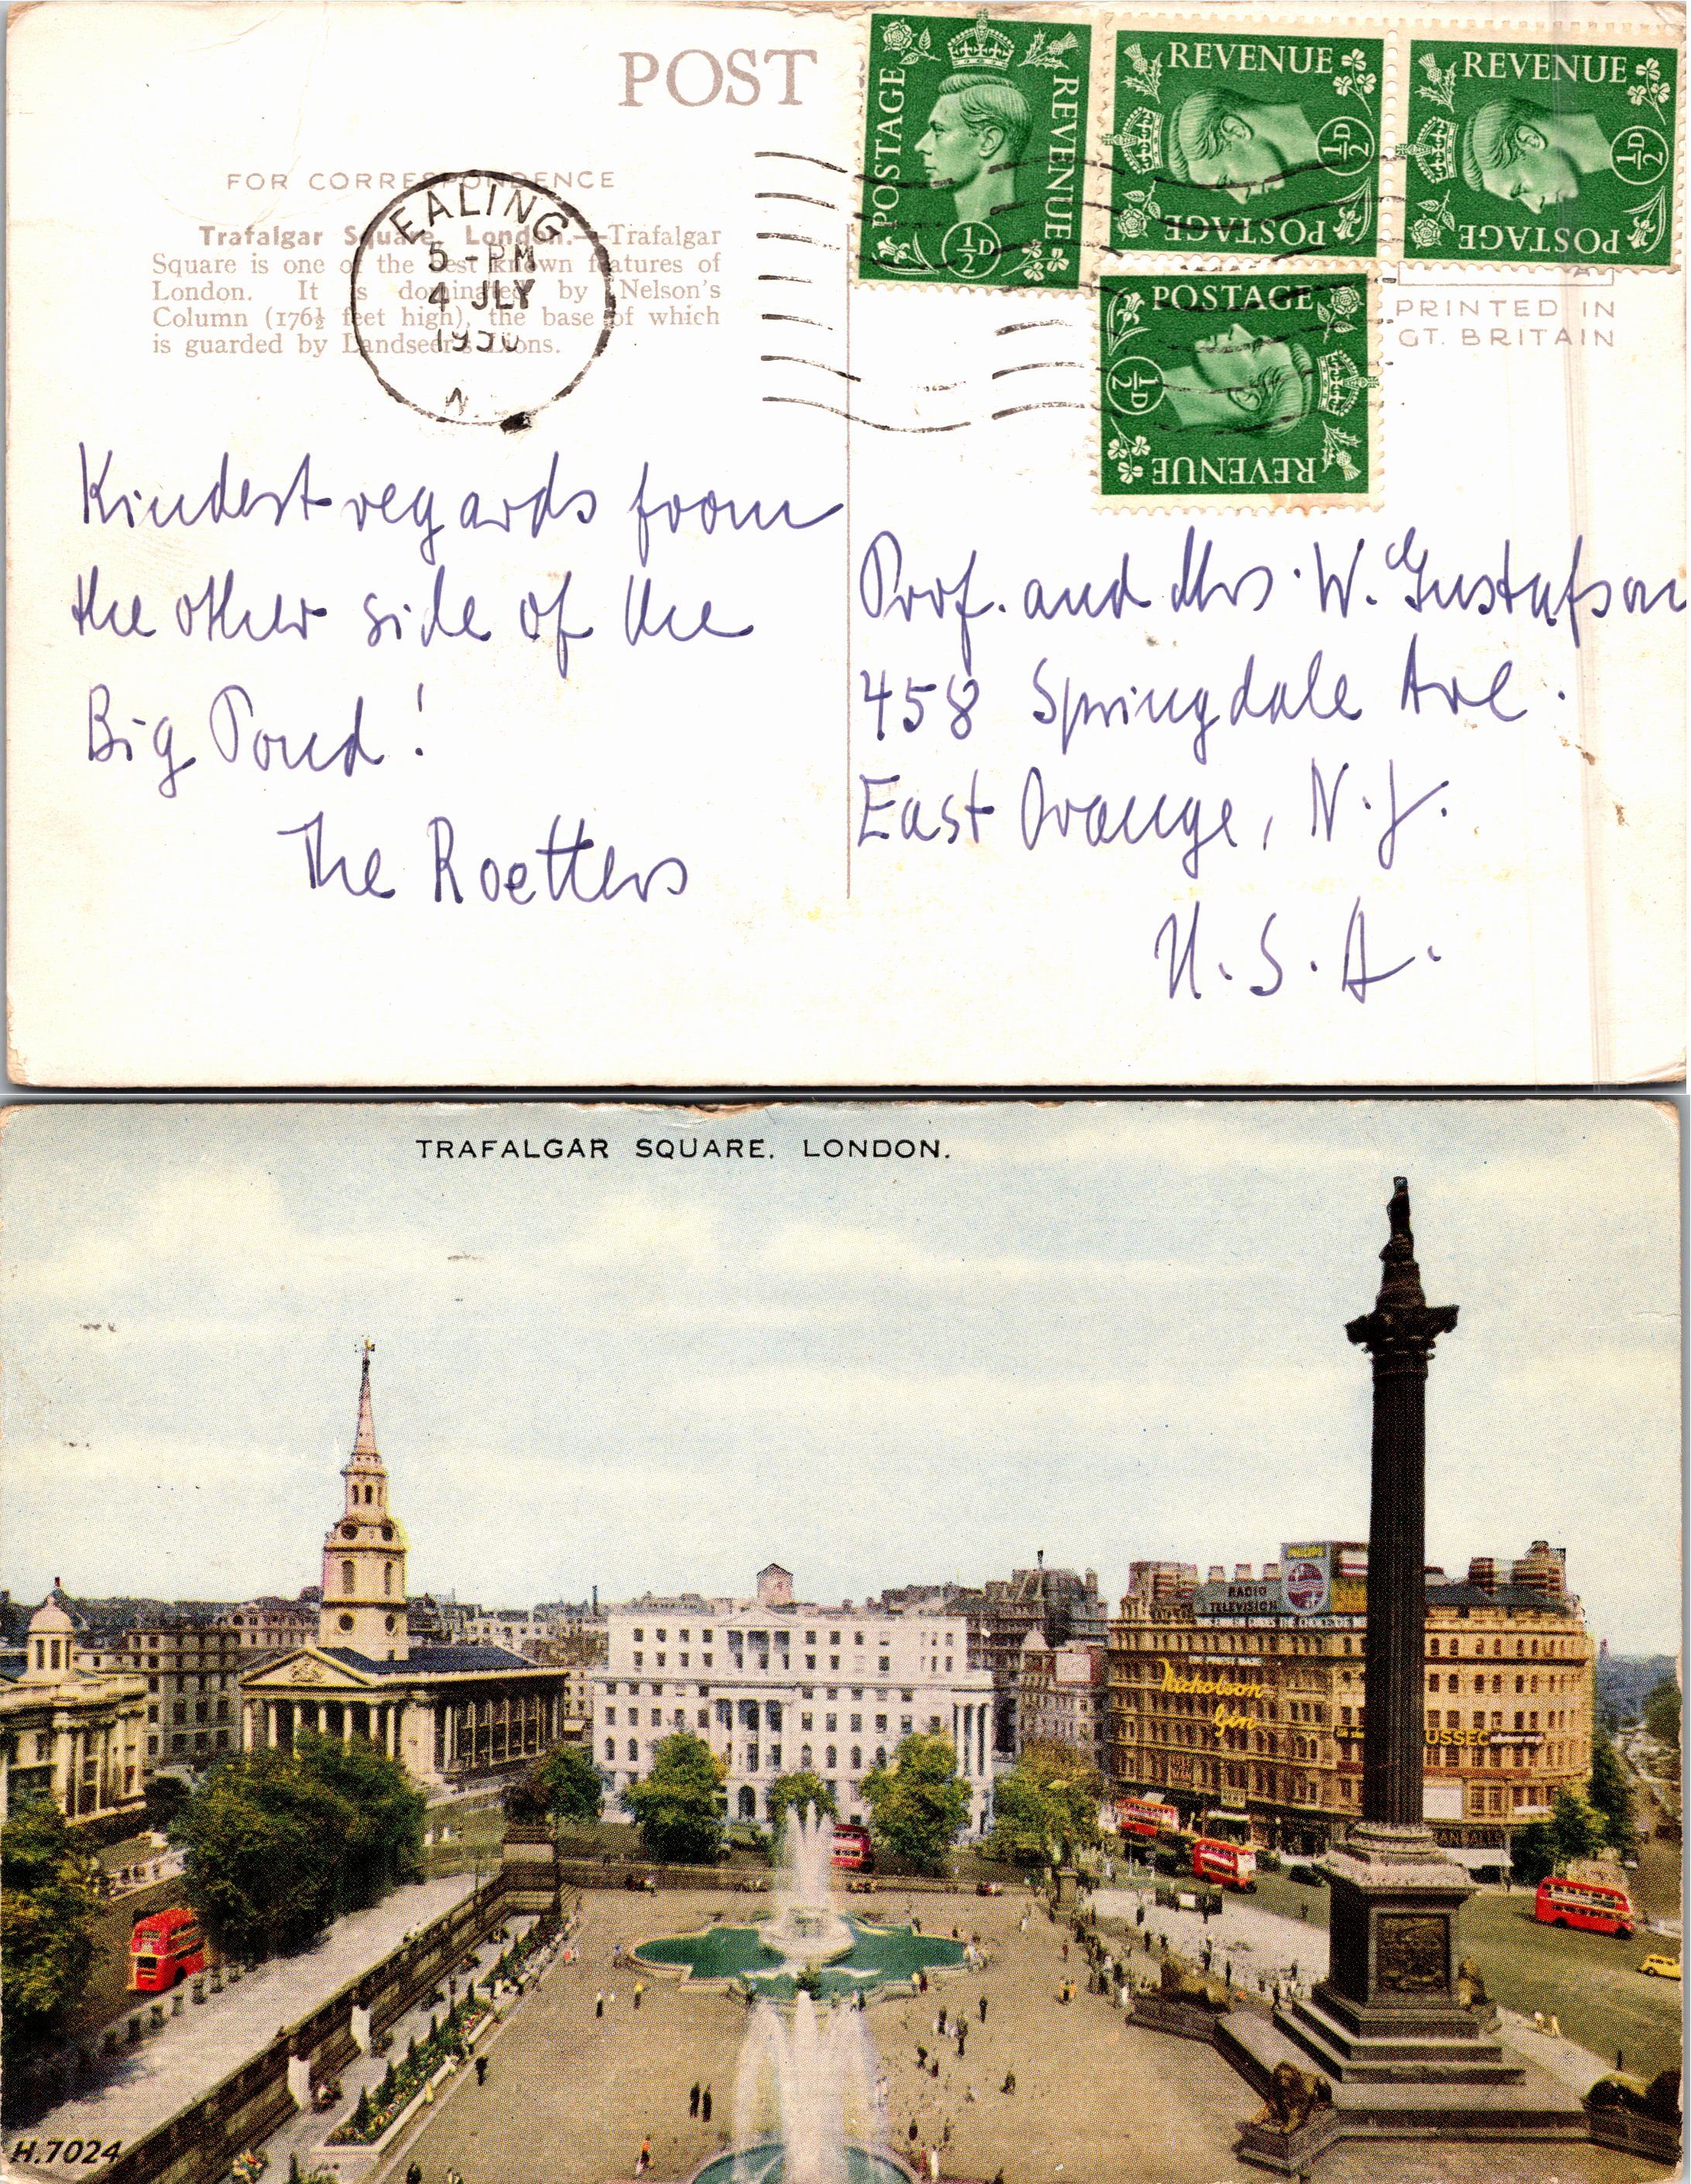 POST
FOR CORRESPONDENCE
Trafalgar Square, London.—Trafalgar
Square is one of the best known features of
London. It is dominated by Nelson's
Column (176½ feet high), the base of which
is guarded by Landseer's Lions.
EALING
5 - PM
4 JLY
1950
POSTAGE REVENUE
½D
REVENUE
½D
POSTAGE
REVENUE
½D
POSTAGE
POSTAGE
½D
REVENUE
PRINTED IN
GT. BRITAIN
Kindest regards from
the other side of the
Big Pond!
The Roetters
Prof. and Mrs. W. Gustafson
458 Springdale Ave.
East Orange, N.J.
U.S.A.
TRAFALGAR SQUARE, LONDON.
PHILIPS
RADIO
TELEVISION
Nicholson
Gin
USSEC
H.7024